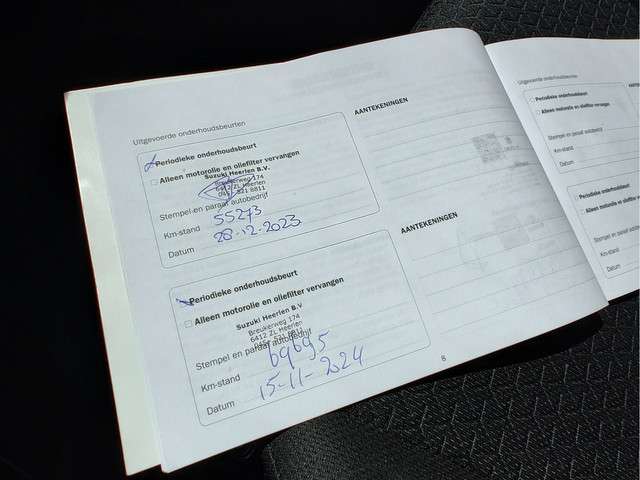 Uitgevoerde onderhoudsbeurten
Periodieke onderhoudsbeurt
Alleen motorolie en oliefilter vervangen
Suzuki Heerlen B.V.
Breukerweg 174
6412 ZL Heerlen
Stempel en paraaf autobedrijf
Km-stand 55273
Datum 28-12-2023
AANTEKENINGEN
Periodieke onderhoudsbeurt
Alleen motorolie en oliefilter vervangen
Suzuki Heerlen B.V.
Breukerweg 174
6412 ZL Heerlen
Stempel en paraaf autobedrijf
Km-stand 69695
Datum 15-11-2024
AANTEKENINGEN
Uitgevoerde onderhoudsbeurten
Periodieke onderhoudsbeurt
Alleen motorolie en oliefilter vervangen
Stempel en paraaf autobedrijf
Km-stand
Datum
Periodieke onderhoudsbeurt
Alleen motorolie en
Stempel en paraaf
Km-stand
Datum